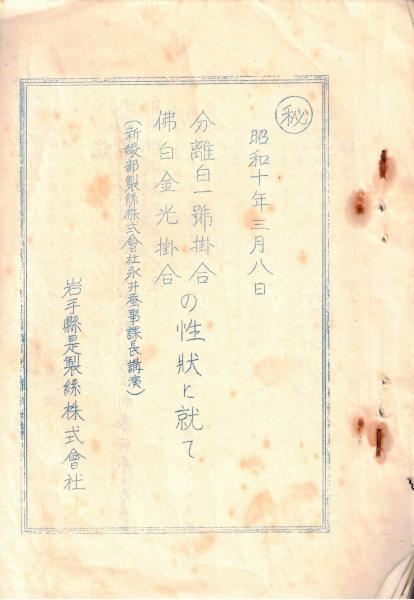 ㊙
昭和十年三月八日
分離白一號掛合
佛白金光掛合
の性狀に就て
(新綾部製絲株式會社永井蚕事課長講演)
岩手縣是製絲株式會社